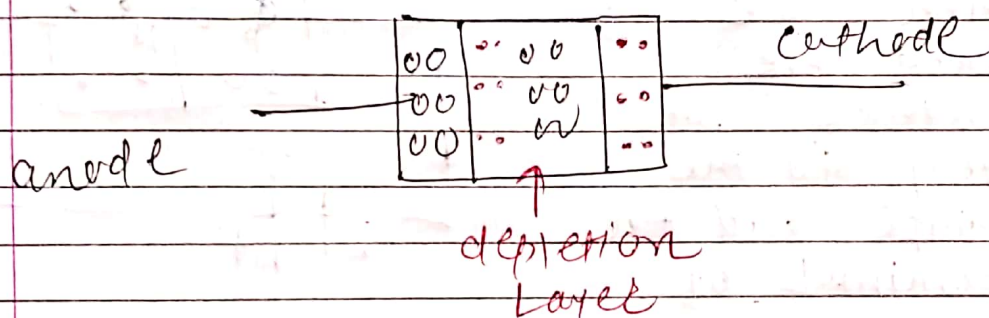 cathode
anode
depletion
Layer